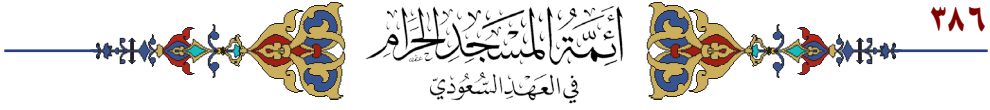 ٣٨٦
أَئِمَّةُ المَسْجِدِ الحَرَامِ
فِي العَهْدِ السُّعُودِيِّ